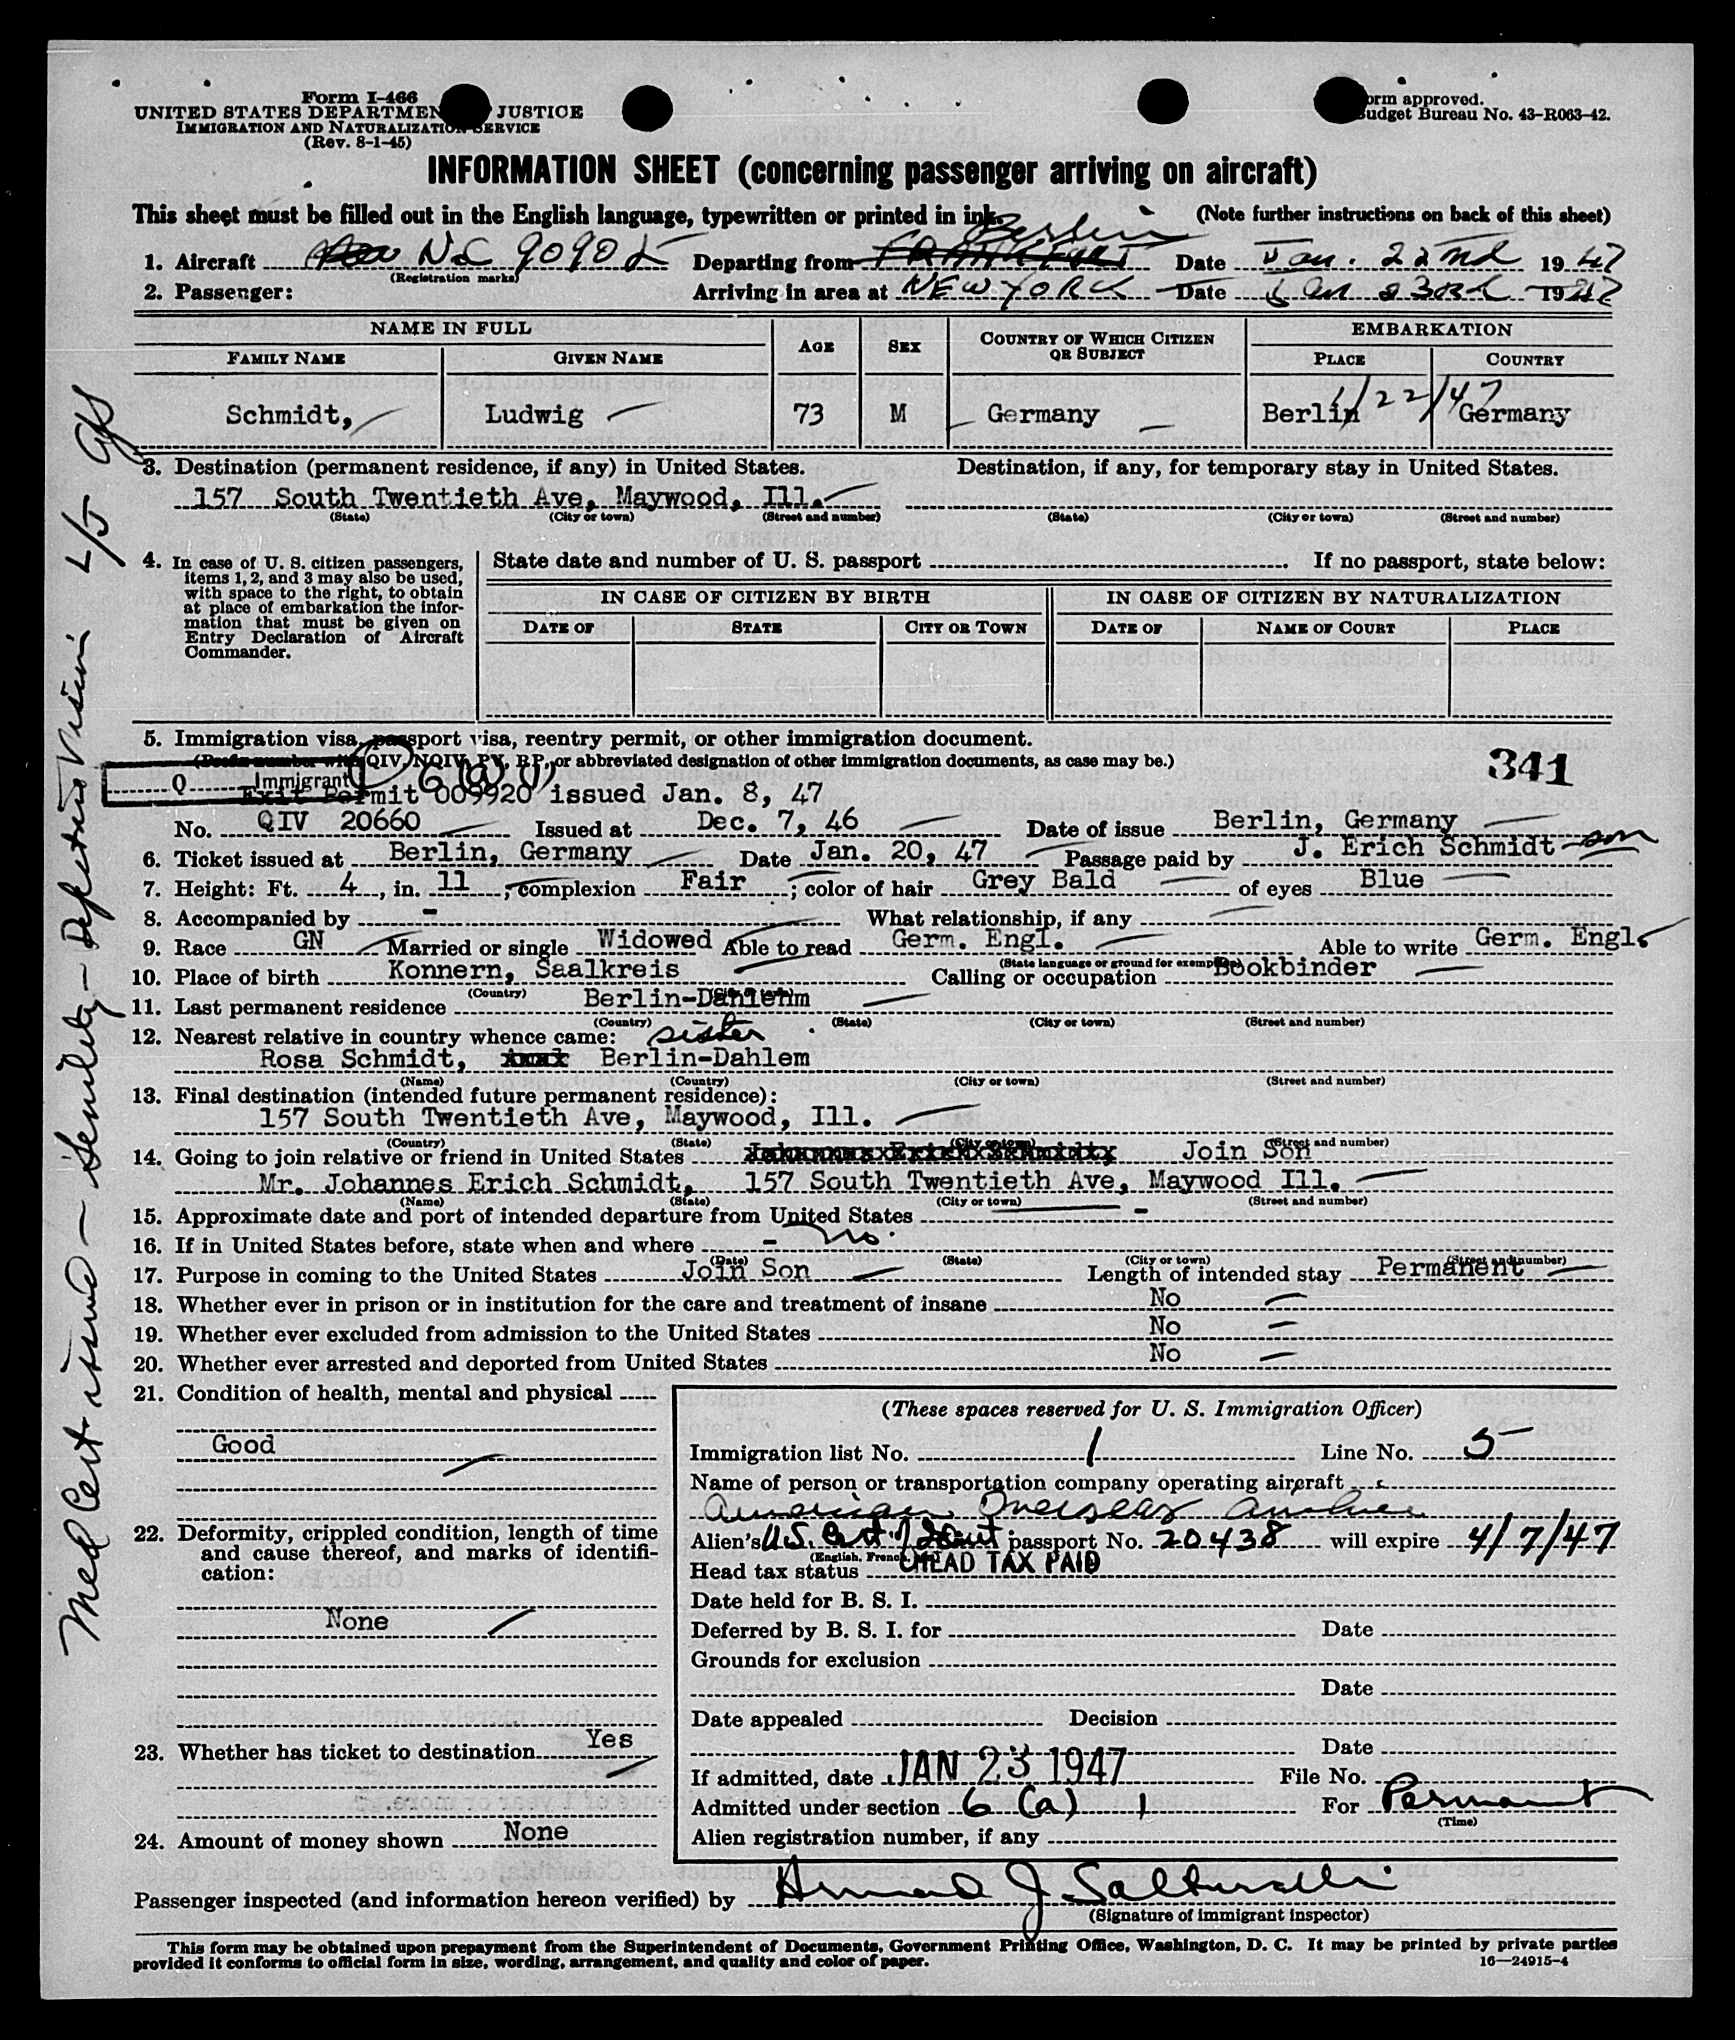 Form I-466
UNITED STATES DEPARTMENT JUSTICE
IMMIGRATION AND NATURALIZATION SERVICE
(Rev. 8-1-45)
orm approved.
Budget Bureau No. 43-R063-42.
INFORMATION SHEET (concerning passenger arriving on aircraft)
This sheet must be filled out in the English language, typewritten or printed in ink. (Note further instructions on back of this sheet)
Berlin
1. Aircraft NC 90905 Departing from FRANKFURT Date Jan. 22nd 1947
(Registration marks)
2. Passenger: Arriving in area at NEW YORK Date Jan 23rd 1947
NAME IN FULL AGE SEX COUNTRY OF WHICH CITIZEN OR SUBJECT EMBARKATION
FAMILY NAME GIVEN NAME PLACE COUNTRY
1/22/47
Schmidt, Ludwig 73 M Germany Berlin Germany
3. Destination (permanent residence, if any) in United States. Destination, if any, for temporary stay in United States.
157 South Twentieth Ave, Maywood, Ill.
(State) (City or town) (Street and number) (State) (City or town) (Street and number)
4. In case of U. S. citizen passengers, items 1, 2, and 3 may also be used, with space to the right, to obtain at place of embarkation the information that must be given on Entry Declaration of Aircraft Commander.
State date and number of U. S. passport If no passport, state below:
IN CASE OF CITIZEN BY BIRTH IN CASE OF CITIZEN BY NATURALIZATION
DATE OF STATE CITY OR TOWN DATE OF NAME OF COURT PLACE
5. Immigration visa, passport visa, reentry permit, or other immigration document.
(Prefix number with QIV, NQIV, PV, RP, or abbreviated designation of other immigration documents, as case may be.)
341
Q Immigrant 6(a)(1)
Exit Permit 009920 issued Jan. 8, 47
No. QIV 20660 Issued at Dec. 7, 46 Date of issue Berlin, Germany
6. Ticket issued at Berlin, Germany Date Jan. 20, 47 Passage paid by J. Erich Schmidt son
7. Height: Ft. 4, in. 11; complexion Fair; color of hair Grey Bald of eyes Blue
8. Accompanied by - What relationship, if any
9. Race GN Married or single Widowed Able to read Germ. Engl. Able to write Germ. Engl.
(State language or ground for exemption)
10. Place of birth Konnern, Saalkreis Calling or occupation Bookbinder
(Country) (City or town)
11. Last permanent residence Berlin-Dahlehm
(Country) (State) (City or town) (Street and number)
12. Nearest relative in country whence came: sister
Rosa Schmidt, Berlin-Dahlem
(Name) (Country) (City or town) (Street and number)
13. Final destination (intended future permanent residence):
157 South Twentieth Ave, Maywood, Ill.
(Country) (State) (City or town) (Street and number)
14. Going to join relative or friend in United States Join Son
Mr. Johannes Erich Schmidt, 157 South Twentieth Ave, Maywood Ill.
(Name) (State) (City or town) (Street and number)
15. Approximate date and port of intended departure from United States -
16. If in United States before, state when and where - No.
(Date) (State) (City or town) (Street and number)
17. Purpose in coming to the United States Join Son Length of intended stay Permanent
18. Whether ever in prison or in institution for the care and treatment of insane No
19. Whether ever excluded from admission to the United States No
20. Whether ever arrested and deported from United States No
21. Condition of health, mental and physical
Good
22. Deformity, crippled condition, length of time and cause thereof, and marks of identification:
None
23. Whether has ticket to destination Yes
24. Amount of money shown None
(These spaces reserved for U. S. Immigration Officer)
Immigration list No. 1 Line No. 5
Name of person or transportation company operating aircraft
American Overseas Airlines
Alien's U.S. Cert of Ident passport No. 20438 will expire 4/7/47
(English, French, etc.)
Head tax status HEAD TAX PAID
Date held for B. S. I.
Deferred by B. S. I. for Date
Grounds for exclusion
Date
Date appealed Decision
Date
If admitted, date JAN 23 1947 File No.
Admitted under section 6 (a) 1 For Permanent
(Time)
Alien registration number, if any
Passenger inspected (and information hereon verified) by
(Signature of immigrant inspector)
This form may be obtained upon prepayment from the Superintendent of Documents, Government Printing Office, Washington, D. C. It may be printed by private parties
provided it conforms to official form in size, wording, arrangement, and quality and color of paper.
16—24915-4
Med Cert issued - Senility - Defective Vision